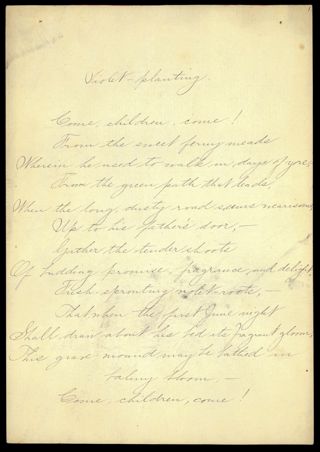 Violet-planting.
Come, children, come!
From the sweet ferny meads
Wherein he used to walk in days of yore,
From the green path that leads,
When the long, dusty road seems wearisome,
Up to his father's door,—
Gather the tender shoots
Of budding promise, fragrance, and delight,
Fresh-sprouting violet-roots,—
That when the first June night
Shall draw about his bed its fragrant gloom,
This grave-mound may be bathed in
balmy bloom,—
Come, children, come!